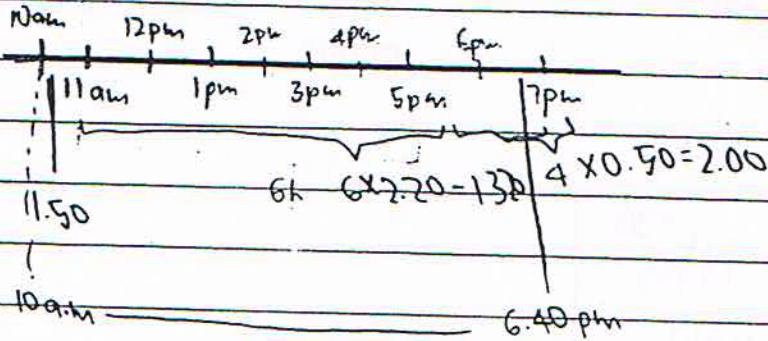 10am 12pm 2pm 4pm 6pm
11am 1pm 3pm 5pm 7pm
6h 6×2.20=1320 4×0.50=2.00
11.50
10a.m 6.40 pm